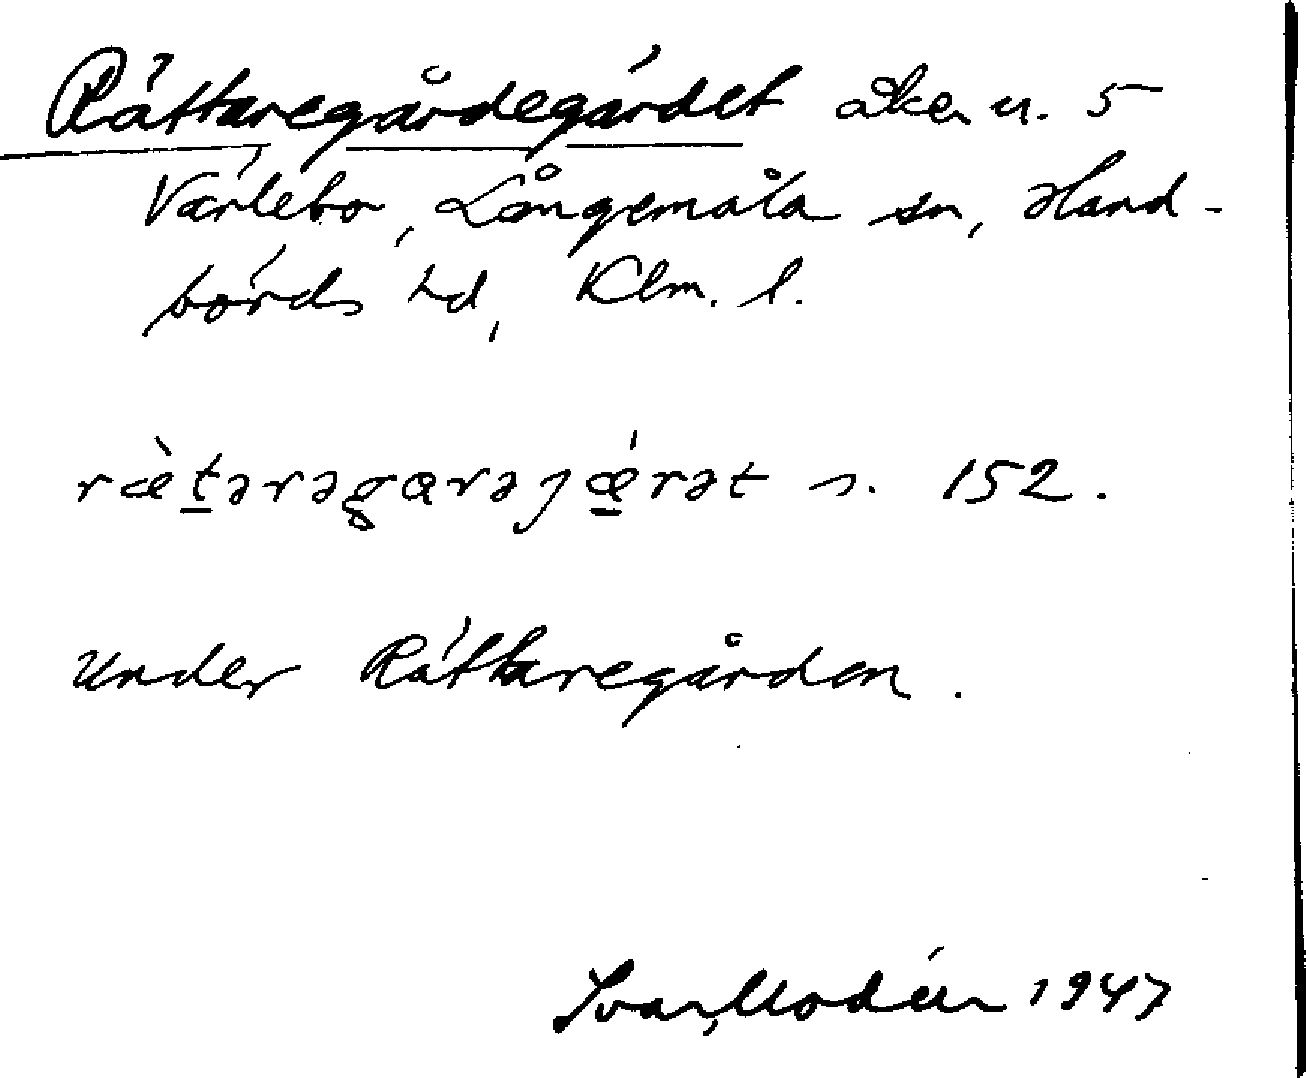 Rättaregårdegärdet åker u. 5
Värlebo, Långemåla sn, Hand-
börds hd, Klm. l.
ræ̀t̠ərəgɑrəjǽ̠rət s. 152.
under Rättaregården.
Ivar Modéer 1947